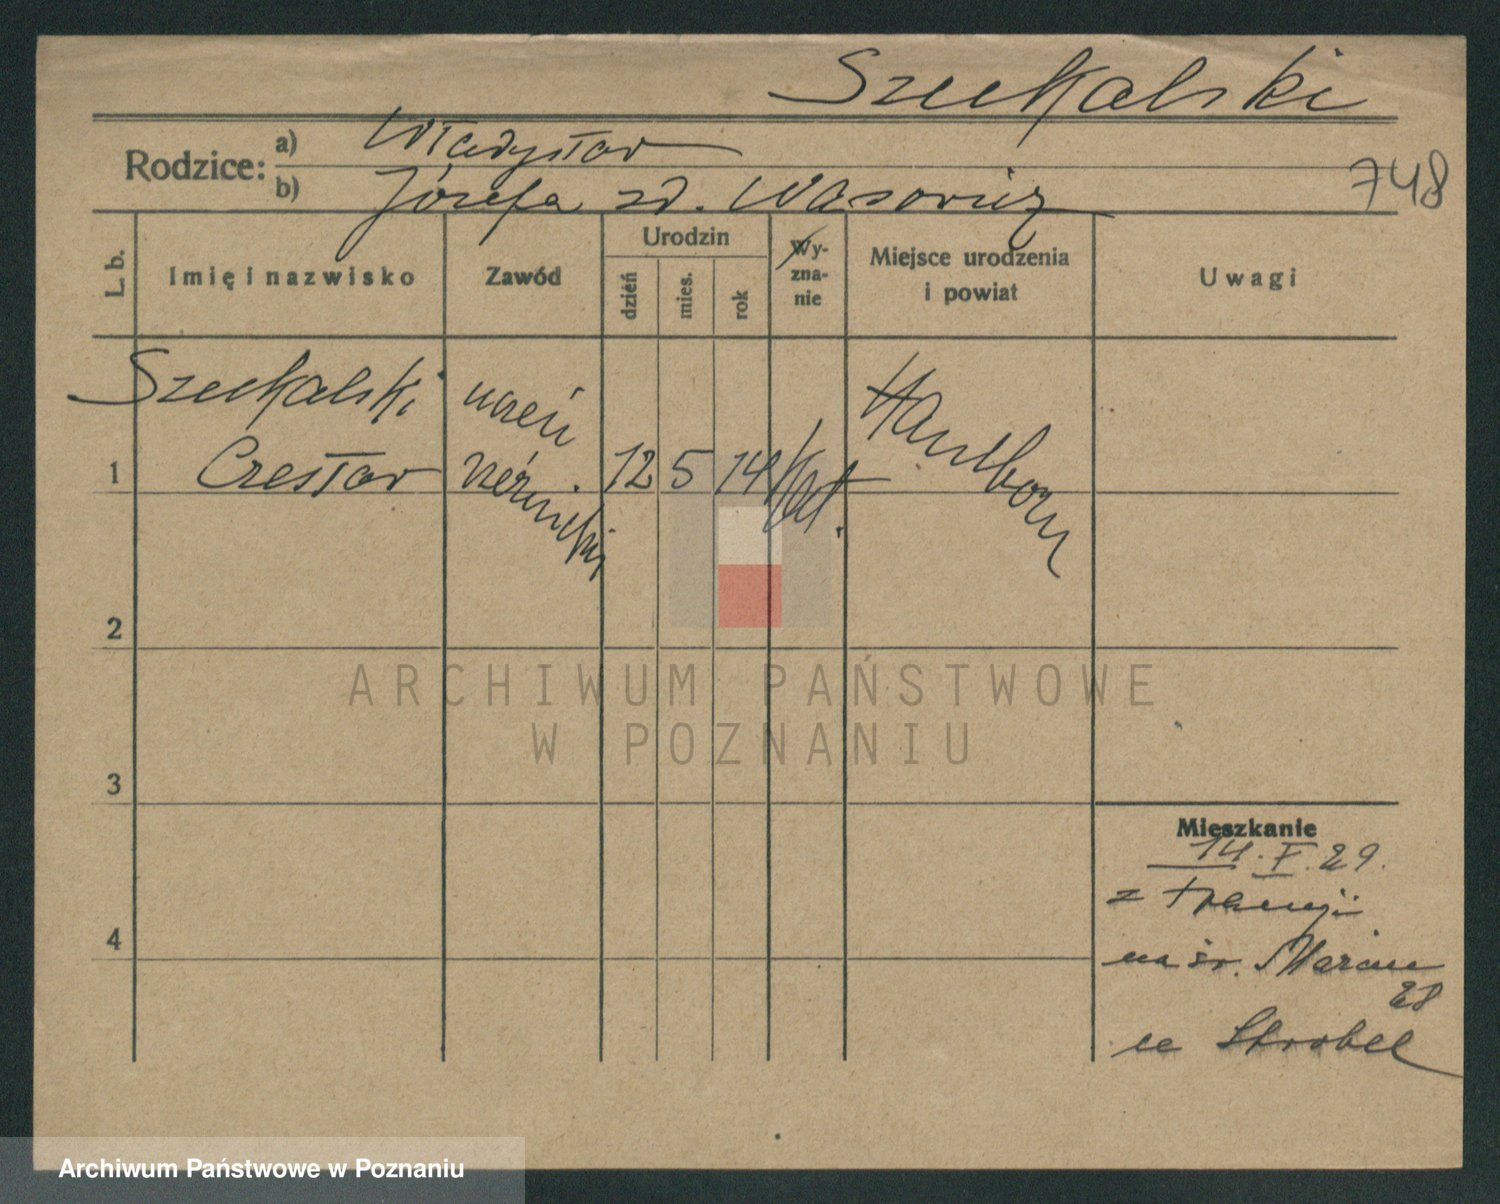 Szeckalski
Rodzice:
a) Władysław
b) Józefa zd. Wąsowicz
748
L. b.
Imię i nazwisko
Zawód
Urodzin
dzień
mies.
rok
Wy-
zna-
nie
Miejsce urodzenia
i powiat
Uwagi
Szeckalski
Czesław
uczeń
rzeźnicki
1
12
5
14
kat.
Hamborn
2
3
4
ARCHIWUM PAŃSTWOWE
W POZNANIU
Mieszkanie
14.V.29.
z
na św. Marcin
28
u Strobel
Archiwum Państwowe w Poznaniu